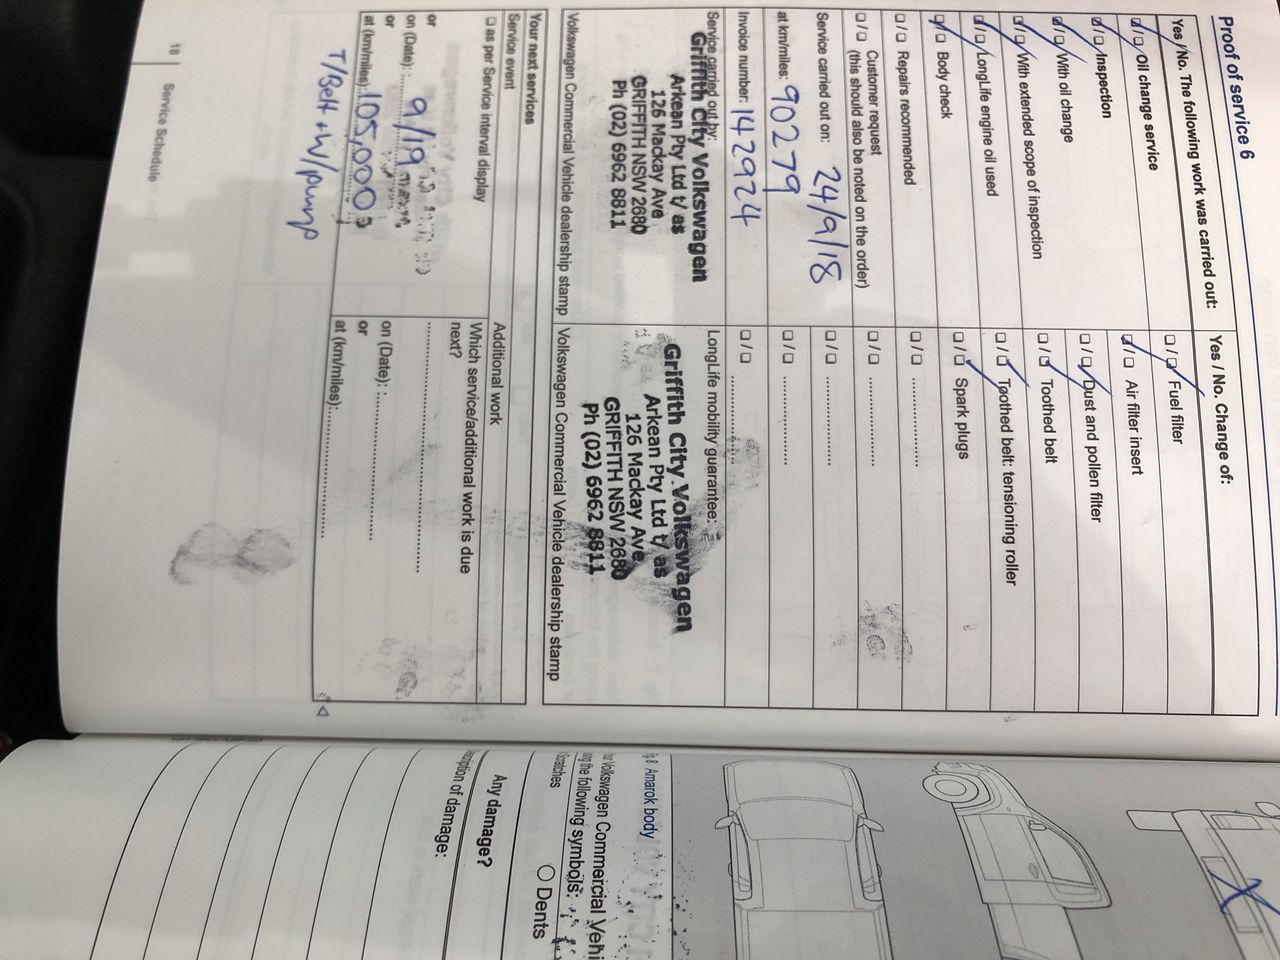 Proof of service 6
Yes / No. The following work was carried out:
Oil change service
Inspection
With oil change
With extended scope of inspection
LongLife engine oil used
Body check
Repairs recommended
Customer request
(this should also be noted on the order)
Service carried out on: 24/9/18
at km/miles: 90279
Invoice number: 142924
Service carried out by:
Griffith City Volkswagen
Arkean Pty Ltd t/ as
126 Mackay Ave
GRIFFITH NSW 2680
Ph (02) 6962 8811
Volkswagen Commercial Vehicle dealership stamp
Yes / No. Change of:
Fuel filter
Air filter insert
Dust and pollen filter
Toothed belt
Toothed belt: tensioning roller
Spark plugs
LongLife mobility guarantee:
Griffith City Volkswagen
Arkean Pty Ltd t/ as
126 Mackay Ave
GRIFFITH NSW 2680
Ph (02) 6962 8811
Volkswagen Commercial Vehicle dealership stamp
Your next services
Service event
as per Service interval display
or
on (Date): 9/19
or
at (km/miles): 105,000
T/Belt + W/pump
Additional work
Which service/additional work is due
next?
on (Date):
or
at (km/miles):
18 Service Schedule
8 Amarok body
Volkswagen Commercial Vehi
the following symbols:
Scratches
Dents
Any damage?
of damage: